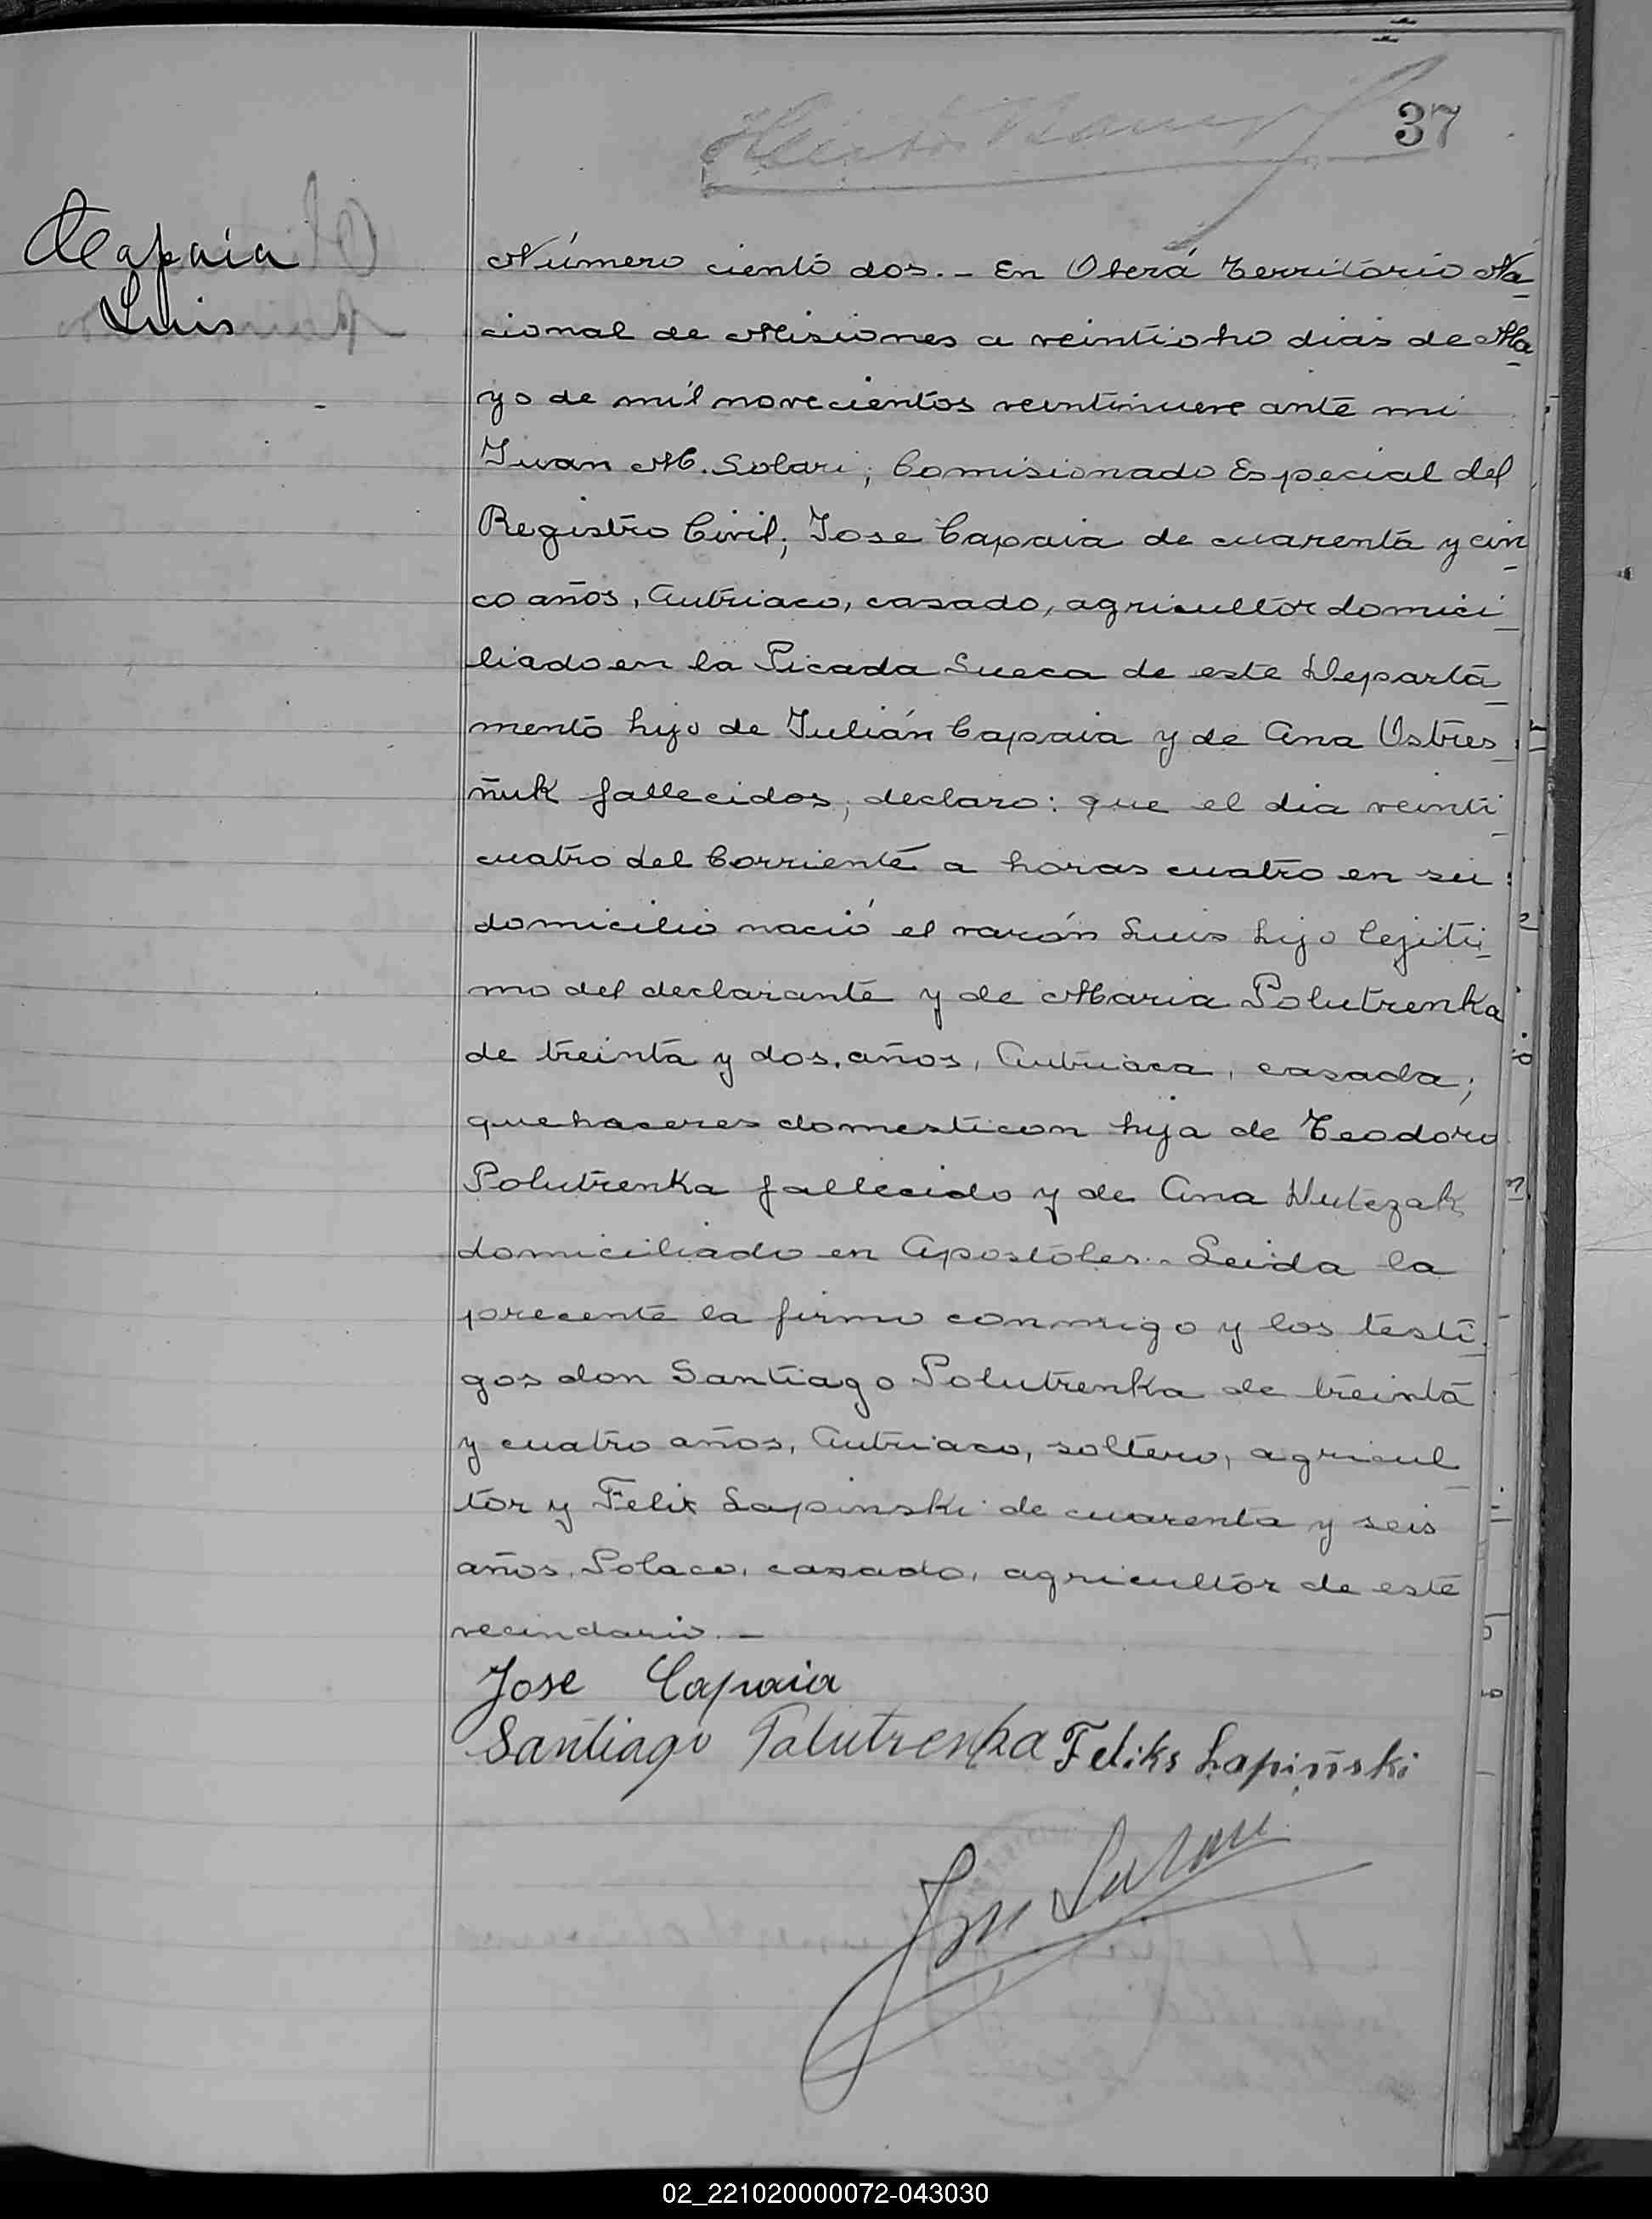 37
Capaia
Luis
Número ciento dos.- En Oberá Territorio Na-
cional de Misiones a veintioho dias de Ma-
yo de mil novecientos veintinueve ante mi
Juan M. Solari, Comisionado Especial del
Registro Civil; Jose Capaia de cuarenta y cin-
co años, Autriaco, casado, agricultor domici-
liado en la Picada Sueca de este Departa-
mento hijo de Julián Capaia y de Ana Ostres-
ñuk fallecidos, declaro: que el dia veinti-
cuatro del Corriente a horas cuatro en su
domicilio nació el varón Luis hijo lejiti-
mo del declarante y de Maria Polutrenka
de treinta y dos años, Autriaca, casada;
quehaceres domesticon hija de Teodoro
Polutrenka fallecido y de Ana Dutczak
domiciliado en Apostoles.- Leida la
precente la firmo conmigo y los testi-
gos don Santiago Polutrenka de treinta
y cuatro años, Autriaco, soltero, agricul-
tor y Felix Lapinski de cuarenta y seis
años, Polaco, casado, agricultor de este
vecindario.-
Jose Capaia
Santiago Polutrenka Feliks Lapiński
02_221020000072-043030